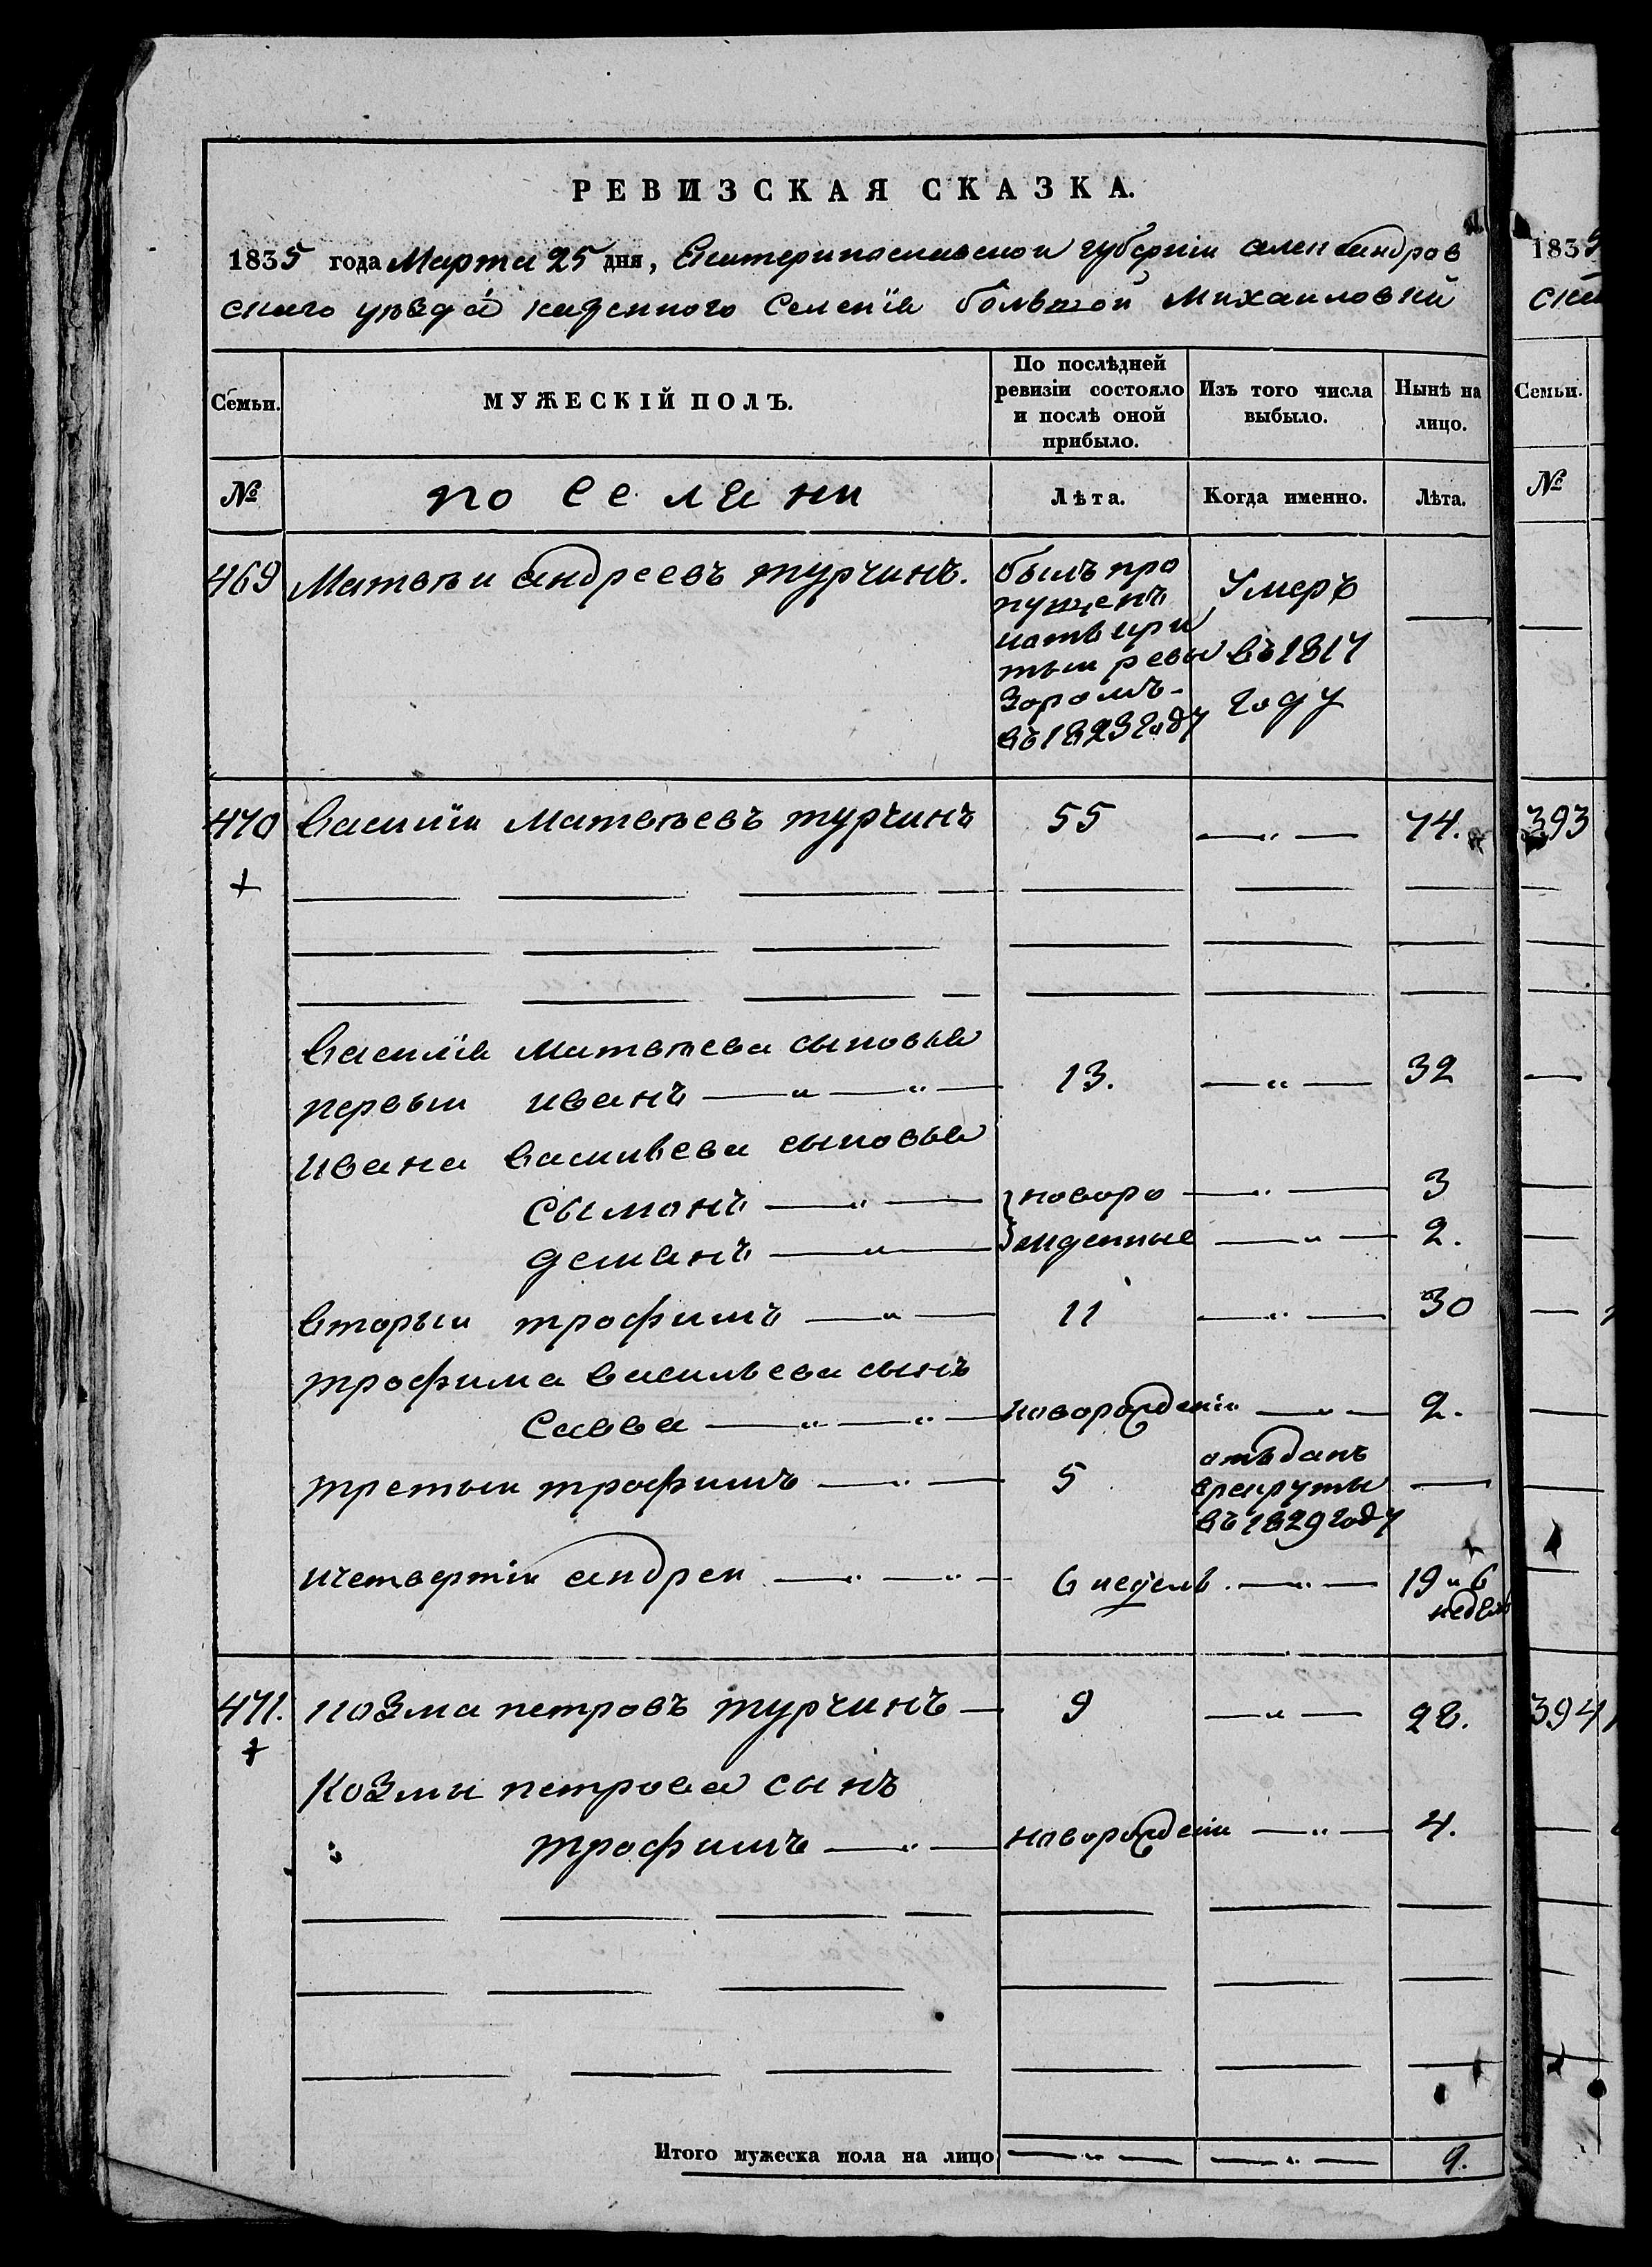 РЕВИЗСКАЯ СКАЗКА.
1835 года Марта 25 дня, Екатеринославской губерніи александров
скаго уѣзда казенного Селенія большой Михаиловки
Семьи.
МУЖЕСКІЙ ПОЛЪ.
По послѣдней ревизіи состояло и послѣ оной прибыло.
Изъ того числа выбыло.
Нынѣ на лицо.
№
поселяни
Лѣта.
Когда именно.
Лѣта.
469 Матвѣи андреевъ турчинъ.
былъ про
пущенъ
ревы
зоромъ
въ 1823 году
Умеръ
въ 1817
году
470 Василіи Матвѣевъ турчинъ 55 74.
Василія Матвѣева сыновья
первыи иванъ 13. 32
ивана Васильева сыновья
Сымонъ новоро 3
демянъ жденные 2.
вторыи трофимъ 11 30
трофима Васильева сынъ
Савва новорожденіи 2.
третыи трофимъ 5
отъданъ
врекруты
въ 1829 году
ичетвертіи андреи 6 недель 19 и 6
недель
471. козма петровъ турчинъ 9 28.
Козмы петрова сынъ
трофимъ новорожденіи 4.
Итого мужеска пола на лицо 9.
1835
Семьи.
№
393
394